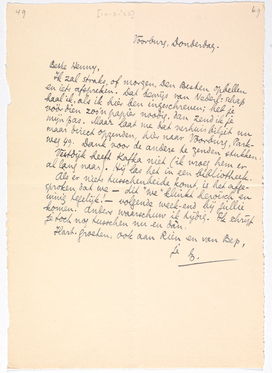 49
69
Voorburg, Donderdag.
Beste Henny,
Ik zal straks, of morgen, Den Besten opbellen
en iets afspreken. Dat bewijs van Nederl.schap
haal ik, als ik hier ben ingeschreven; heb je
vóór dien zoo'n papier noodig, dan zend ik je
mijn pas. Maar laat me dat verhuisbiljet nu
maar direct opzenden, hier naar Voorburg, Park-
weg 49. Dank voor de andere te zenden stukken.
Vestdijk heeft Kafka niet (ik vroeg hem er
al lang naar). Hij las het in een bibliotheek.
Als er niets tusschenbeide komt, is het afge-
sproken dat we — dit "we" klinkt heroïsch en
innig tegelijk! — volgende week-end bij jullie
komen. Anders waarschuw ik tijdig. Ik schrijf
je toch nog tusschen nu en dan.
Hart. groeten, ook aan Rien en van Bep,
je E.